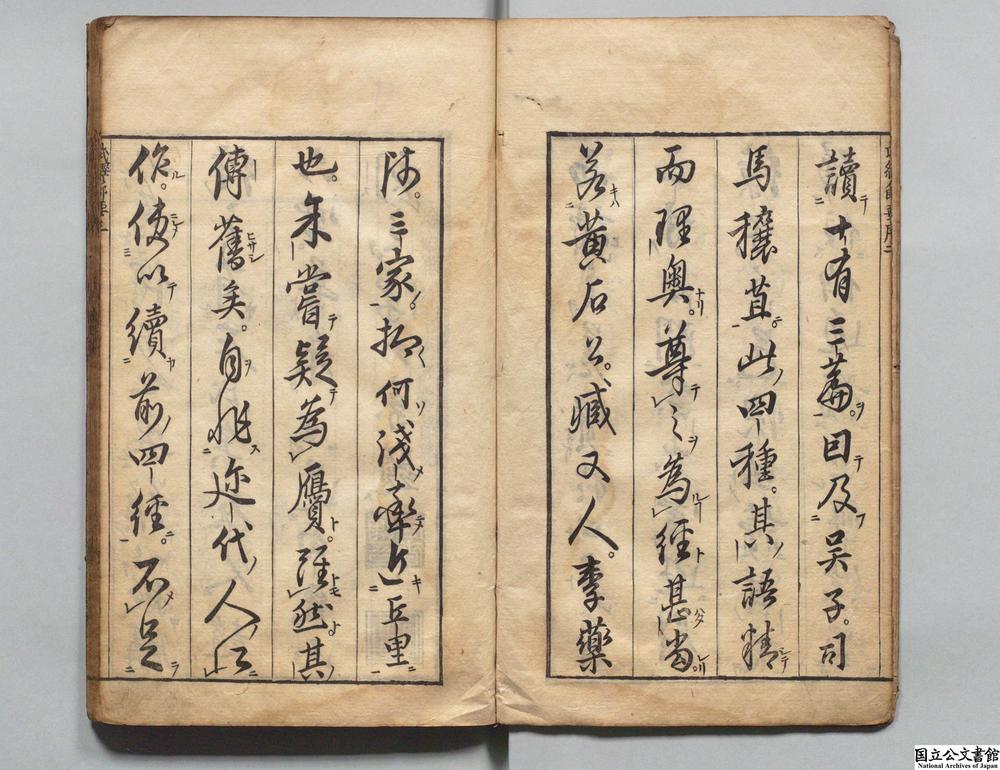 讀十有三篇。因及吳子。司
馬穰苴。此四種。其語精
而理奧。尊之為經甚當。
若黃石公。臧丈人。李藥
師。三家抑何淺率近丘里
也。余嘗疑為贗。雖然其
傳舊矣。自非迩代人所
作。使以續前四經。不足
国立公文書館
National Archives of Japan